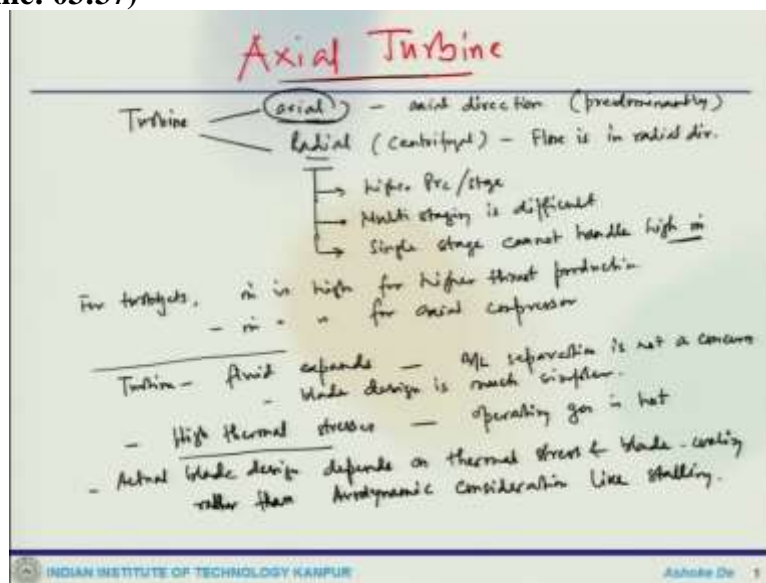 Axial Turbine
Turbine
axial - axial direction (predominantly)
Radial (Centrifugal) - Flow is in radial dir.
→ higher Prc/stage
→ Multi staging is difficult
→ Single stage cannot handle high ṁ
For turbojets, ṁ is high for higher thrust production
- ṁ " " for axial compressor
Turbine - fluid expands - B/L separation is not a concern
- blade design is much simpler.
- High thermal stresses - operating gas is hot
- Actual blade design depends on thermal stress & blade-cooling
rather than Aerodynamic consideration like stalling.
INDIAN INSTITUTE OF TECHNOLOGY KANPUR
Ashoke De 1